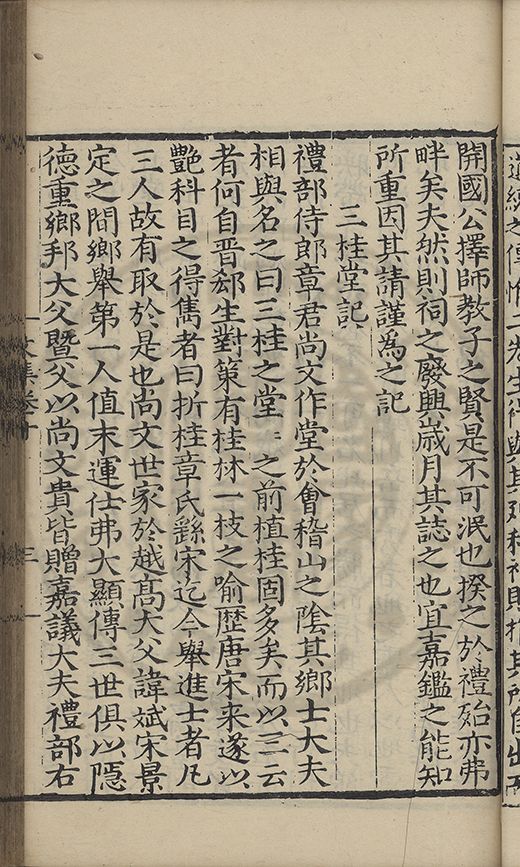 開國公擇師教子之賢是不可泯也揆之於禮殆亦弗
畔矣夫然則祠之廢興歲月其誌之也宜嘉鑑之能知
所重因其請謹為之記
三桂堂記
禮部侍郎章君尚文作堂於會稽山之陰其鄉士大夫
相與名之曰三桂之堂〻之前植桂固多矣而以三云
者何自晋郄生對策有桂林一枝之喻歷唐宋来遂以
艷科目之得雋者曰折桂章氏繇宋迄今舉進士者凡
三人故有取於是也尚文世家於越髙大父諱斌宋景
定之間鄉舉第一人值末運仕弗大顯傳三世俱以隱
德重鄉邦大父暨父以尚文貴皆贈嘉議大夫禮部右
文集卷十
三